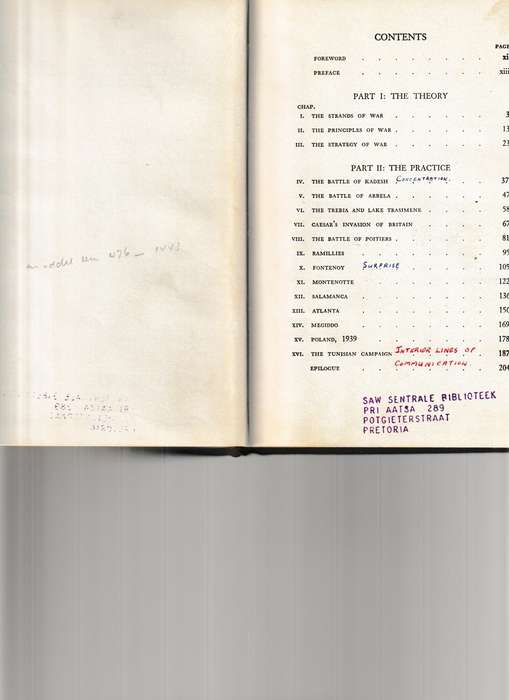 CONTENTS
PAGE
FOREWORD . . . . . . . xi
PREFACE . . . . . . . xiii
PART I: THE THEORY
CHAP.
I. THE STRANDS OF WAR . . . . . 3
II. THE PRINCIPLES OF WAR . . . . . 13
III. THE STRATEGY OF WAR . . . . . 23
PART II: THE PRACTICE
IV. THE BATTLE OF KADESH CONCENTRATION. 37
V. THE BATTLE OF ARBELA . . . . . 47
VI. THE TREBIA AND LAKE TRASIMENE . . . . 58
VII. CAESAR'S INVASION OF BRITAIN . . . . 67
VIII. THE BATTLE OF POITIERS . . . . . 81
IX. RAMILLIES . . . . . . 95
X. FONTENOY SURPRISE . . . . 105
XI. MONTENOTTE . . . . . . 122
XII. SALAMANCA . . . . . . 136
XIII. ATLANTA . . . . . . 150
XIV. MEGIDDO . . . . . . 169
XV. POLAND, 1939 . . . . . . 178
XVI. THE TUNISIAN CAMPAIGN INTERIOR LINES OF 187
EPILOGUE COMMUNICATION. 204
SAW SENTRALE BIBLIOTEEK
PRIVAATSAK 289
POTGIETERSTRAAT
PRETORIA